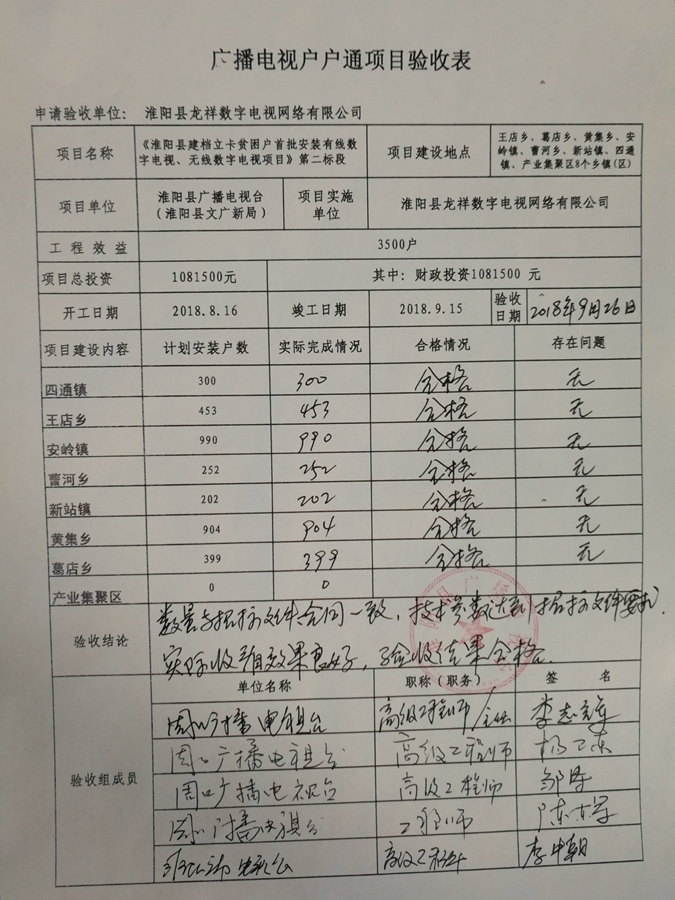 广播电视户户通项目验收表
申请验收单位： 淮阳县龙祥数字电视网络有限公司
项目名称 《淮阳县建档立卡贫困户首批安装有线数字电视、无线数字电视项目》第二标段 项目建设地点 王店乡、葛店乡、黄集乡、安岭镇、曹河乡、新站镇、四通镇、产业集聚区8个乡镇(区)
项目单位 淮阳县广播电视台（淮阳县文广新局） 项目实施单位 淮阳县龙祥数字电视网络有限公司
工程效益 3500户
项目总投资 1081500元 其中：财政投资1081500 元
开工日期 2018.8.16 竣工日期 2018.9.15 验收日期 2018年9月26日
项目建设内容 计划安装户数 实际完成情况 合格情况 存在问题
四通镇 300 300 合格 无
王店乡 453 453 合格 无
安岭镇 990 990 合格 无
曹河乡 252 252 合格 无
新站镇 202 202 合格 无
黄集乡 904 904 合格 无
葛店乡 399 399 合格 无
产业集聚区 0 0
验收结论 数量与招标文件合同一致，技术参数达到招标文件要求.
实际收视效果良好，验收结果合格.
验收组成员 单位名称 职称（职务） 签 名
周口广播电视台 高级工程师
周口广播电视台 高级工程师
周口广播电视台 高级工程师
周口广播电视台 工程师
高级工程师 李中朝